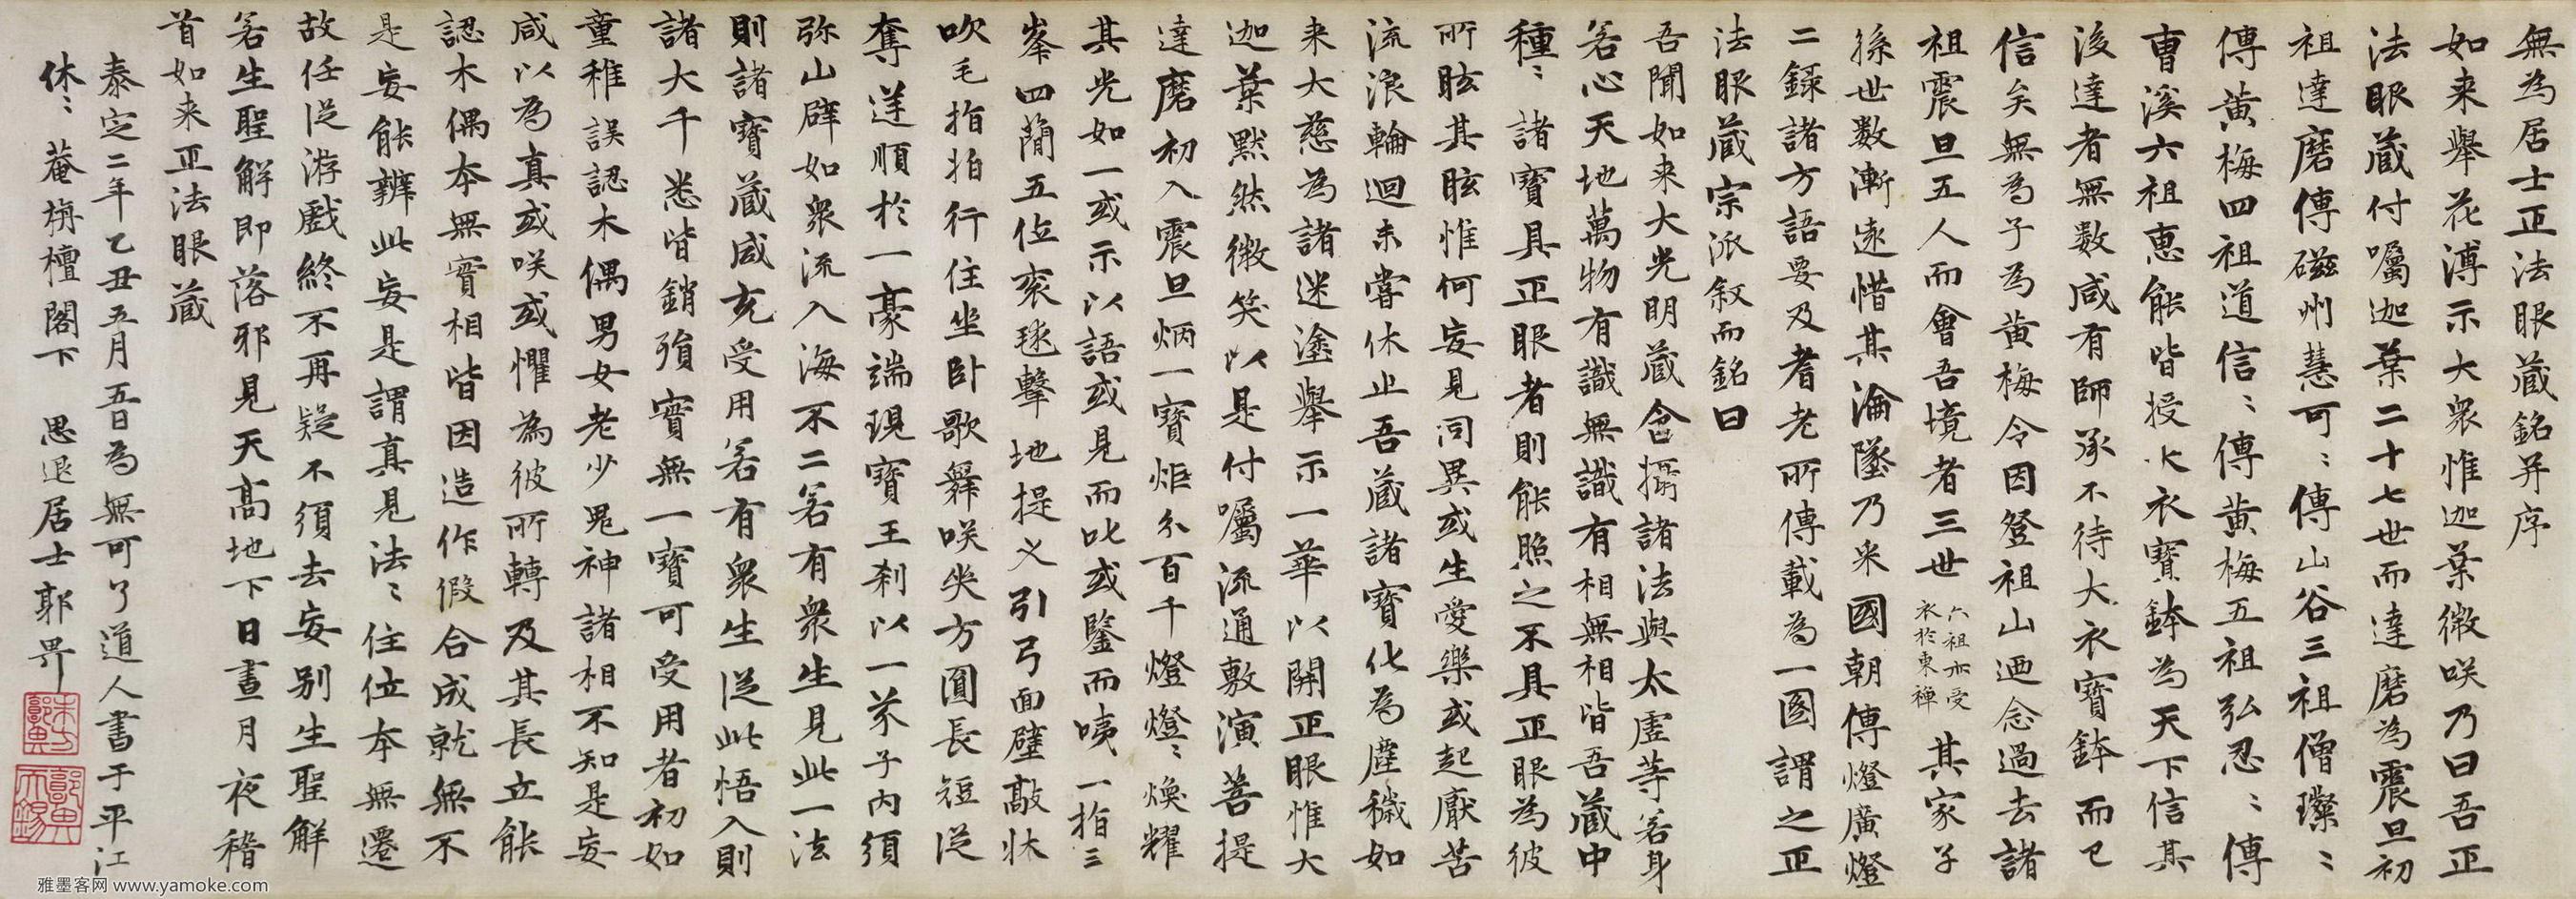 無為居士正法眼蔵銘并序
如来舉花溥示大衆惟迦葉微咲乃曰吾正
法眼蔵付囑迦葉二十七世而達磨為震旦初
祖達磨傳磁州慧可〻傳山谷三祖僧璨〻
傳黄梅四祖道信〻傳黄梅五祖弘忍〻傳
曺溪六祖恵能皆授大衣寳鉢為天下信其
後達者無数咸有師承不待大衣寳鉢而已
信矣無為子為黄梅令因登祖山迺念過去諸
祖震旦五人而會吾境者三世六祖亦受衣於東禪其家子
孫世数漸逺惜其淪墜乃采國朝傳燈廣燈
二録諸方語要及耆老所傳載為一圖謂之正
法眼蔵宗派叙而銘曰
吾聞如来大光明蔵含攝諸法與太虚等若身
若心天地萬物有識無識有相無相皆吾蔵中
種〻諸寳具正眼者則能照之不具正眼為彼
所眩其眩惟何妄見同異或生愛樂或起厭苦
流浪輪迴未嘗休止吾蔵諸寳化為塵穢如
来大慈為諸迷塗舉示一華以開正眼惟大
迦葉默然微笑以是付囑流通敷演菩提
達磨初入震旦炳一寳炬分百千燈燈〻煥耀
其光如一或示以語或見而叱或鑒而咦一指三
峯四蕳五位衮毬擊地提义引弓面壁敲牀
吹毛指拍行住坐卧歌舞咲哭方圓長短从
奪逆順於一豪端現寳王刹以一芥子内須
弥山辟如衆流入海不二若有衆生見此一法
則諸寳蔵咸充受用若有衆生从此悟入則
諸大千悉皆銷殞實無一寳可受用者初如
童稚誤認木偶男女老少鬼神諸相不知是妄
咸以為真或咲或懼為彼所轉及其長立能
認木偶夲無實相皆因造作假合成就無不
是妄能辨此妄是謂真見法〻住位夲無遷
故任从游戲終不再疑不須去妄别生聖解
若生聖解即落邪見天髙地下日晝月夜稽
首如来正法眼蔵
泰定二年乙丑五月五日為無可了道人書于平江
休〻菴栴檀閣下 思退居士郭畀
雅墨客网 www.yamoke.com